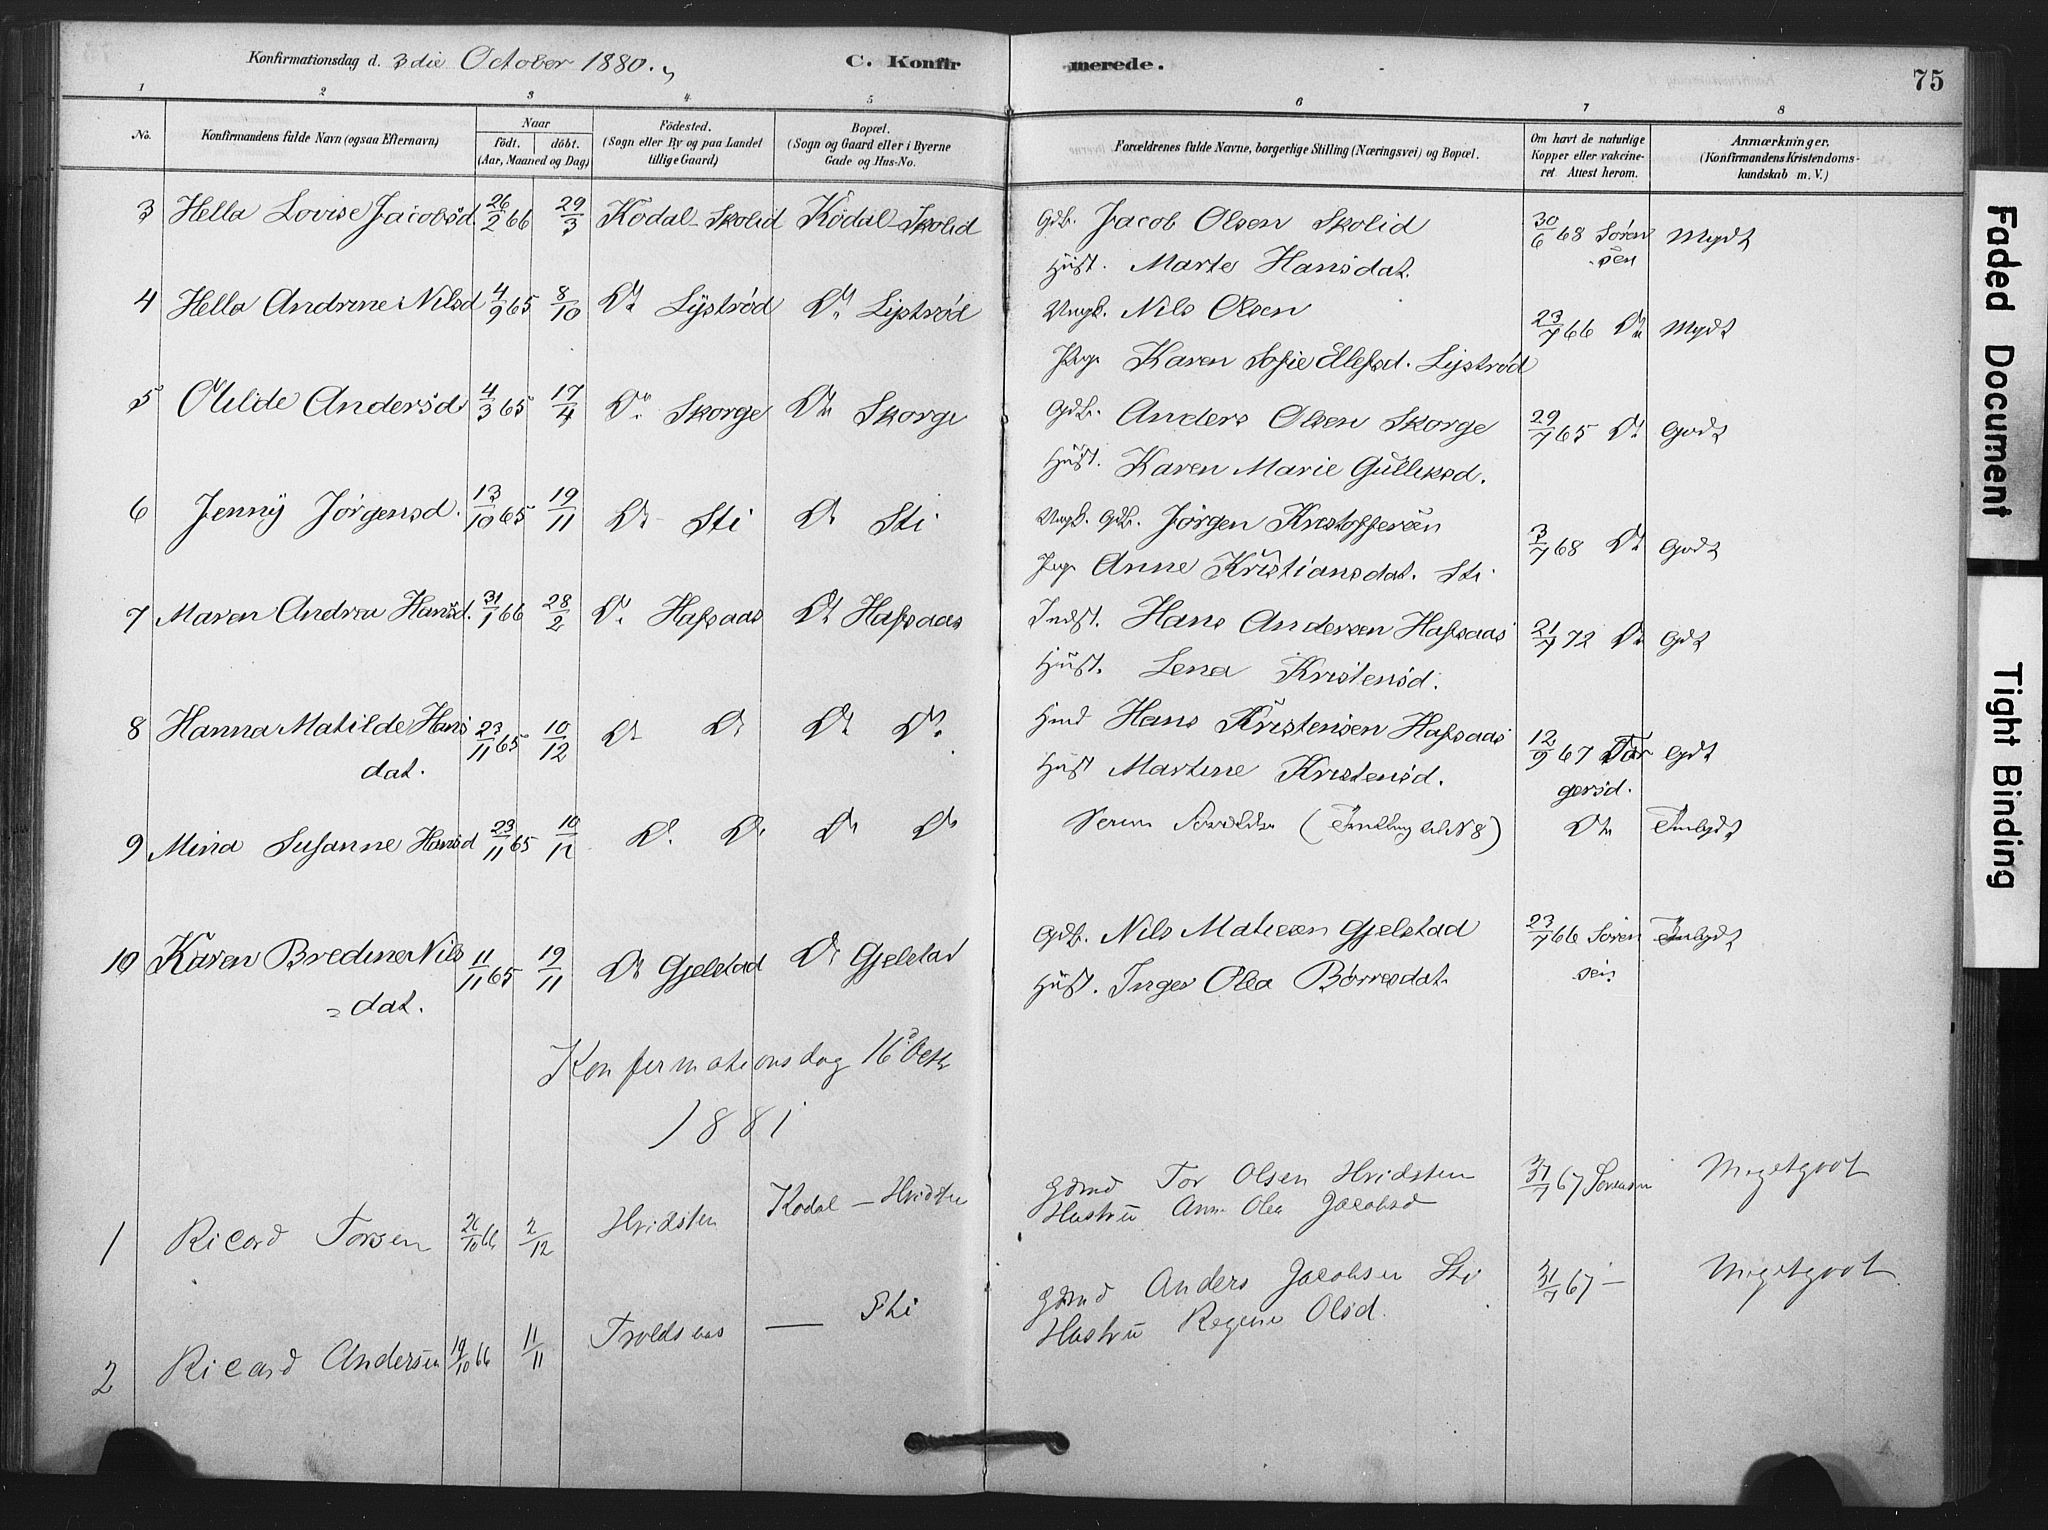 Konfirmationsdag d. 3die October 1880. C. Konfir merede. 75
1 2 3 4 5 6 7 8
No. Konfirmandens fulde Navn (ogsaa Efternavn) Naar født. døbt. (Aar, Maaned og Dag) Fødested. (Sogn eller By og paa Landet tillige Gaard) Bopæl. (Sogn og Gaard eller i Byerne Gade og Hus-No. Forældrenes fulde Navne, borgerlige Stilling (Næringsvei) og Bopæl. Om havt de naturlige Kopper eller vakcineret Attest herom. Anmærkninger. (Konfirmandens Kristendomskundskab m. V.)
3 Hella Lovise Jacobsd. 26/2 66 29/3 Kodal - Skolid Kodal - Skolid Gdb. Jacob Olsen Skolid 30/6 68 Søren Mgdt
Hust. Marte Hansdat. sen
4 Hella Andrine Nilsd 4/9 65 8/10 Do Lystrød Do Lystrød Ungk. Nils Olsen 23/7 66 Do Mgdt
Pige Karen Sofie Ellefsd. Lystrød
5 Olilde Andersd 4/3 65 17/4 Do Skorge Do Skorge Gdb. Anders Olsen Skorge 29/7 65 Do Godt
Hust. Karen Marie Gulliksd.
6 Jenny Jørgensd. 13/10 65 19/11 Do Sti Do Sti Ungk. Gdb. Jørgen Kristoffersen 3/7 68 Do Godt
Pige Anne Kristiansdat. Sti
7 Maren Andrea Hansd. 31/1 66 28/2 Do Hafsaas Do Hafsaas Indst. Hans Andersen Hafsaas 21/7 72 Do Gdt
Hust. Lena Kristensd.
8 Hanna Matilde Hans 23/11 65 10/12 Do Do Do Do Hmd Hans Kristensen Hafsaas 12/9 67 Tor Gdt
dat. Hust Martine Kristensd. gersd.
9 Mina Susanne Hansd 23/11 65 10/12 Do Do Do Do (Tvilling til N 8) Do Tmlgdt
10 Karen Bredine Nils 11/11 65 19/11 Do Gjelstad Do Gjelstad Gdb. Nils Matisen Gjelstad 23/7 66 Søren
= dat. Hust. Inger Olea Børresdat. sen
Konfirmationsdag 16de Octb
1881
1 Ricard Torsen 26/10 66 2/12 Hvidsten Kodal - Hvidsten Gdmd Tor Olsen Hvidsten 31/7 67 Sørensen Megetgodt
Hustru Anne Olea Jacobsd
2 Ricard Andersen 19/10 66 11/11 Troldsaas — Sti Gdmd Anders Jacobsen Sti 31/7 67 — Megetgodt
Hustru Regine Olsd.
Faded Document
Tight Binding